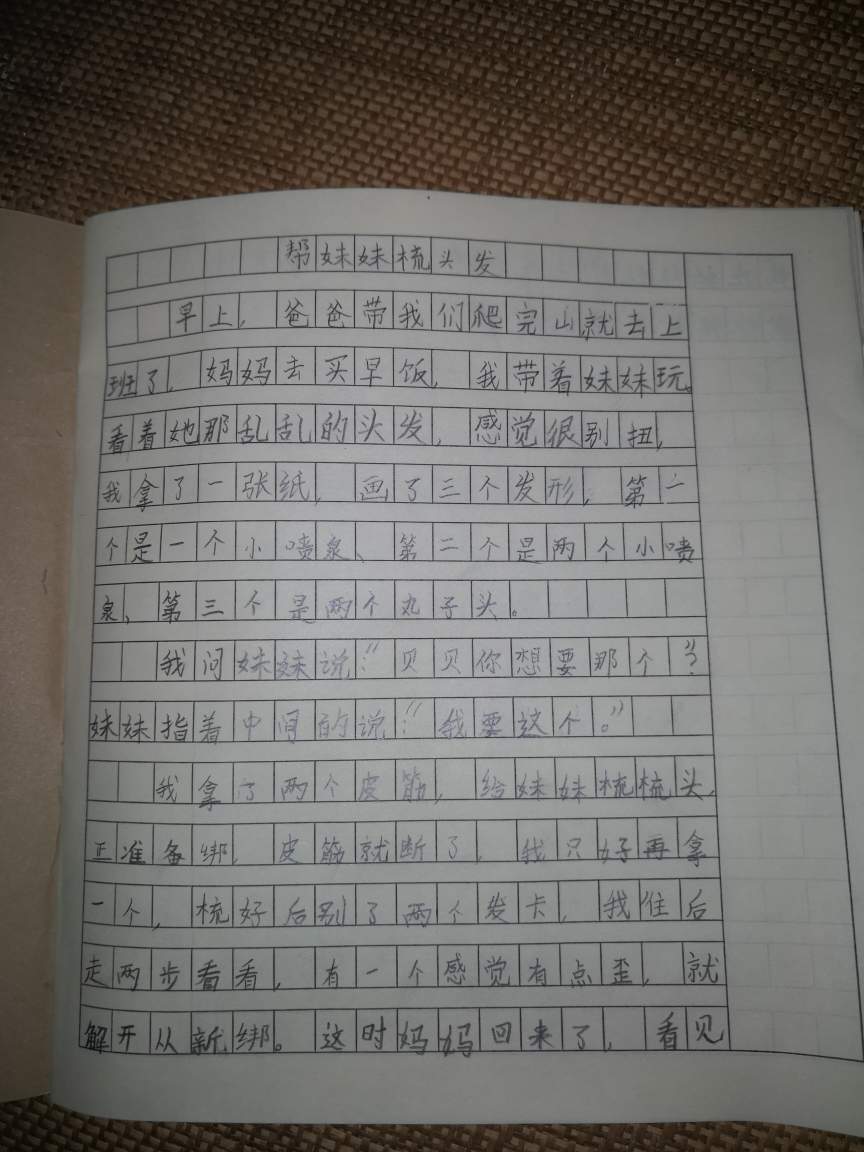 帮妹妹梳头发
早上，爸爸带我们爬完山就去上
班了，妈妈去买早饭，我带着妹妹玩。
看着她那乱乱的头发，感觉很别扭，
我拿了一张纸，画了三个发形，第一
个是一个小喷泉、第二个是两个小喷
泉、第三个是两个丸子头。
我问妹妹说：“贝贝你想要那个”？
妹妹指着中间的说：“我要这个。”
我拿了两个皮筋，给妹妹梳梳头，
正准备绑，皮筋就断了，我只好再拿
一个，梳好后别了两个发卡，我住后
走两步看看，有一个感觉有点歪，就
解开从新绑。这时妈妈回来了，看见